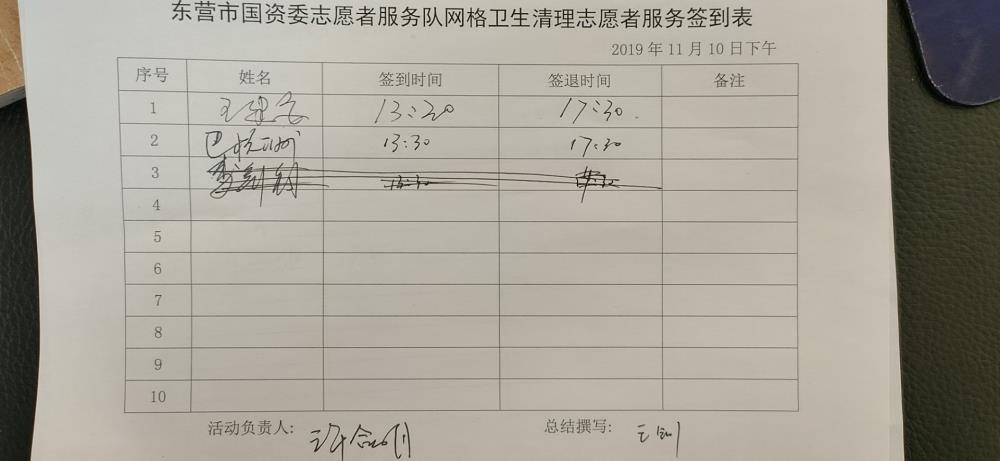 东营市国资委志愿者服务队网格卫生清理志愿者服务签到表
2019 年 11 月 10 日下午
序号 姓名 签到时间 签退时间 备注
1 13:20 17:30
2 13:30 17:30
3
4
5
6
7
8
9
10
活动负责人: 总结撰写: